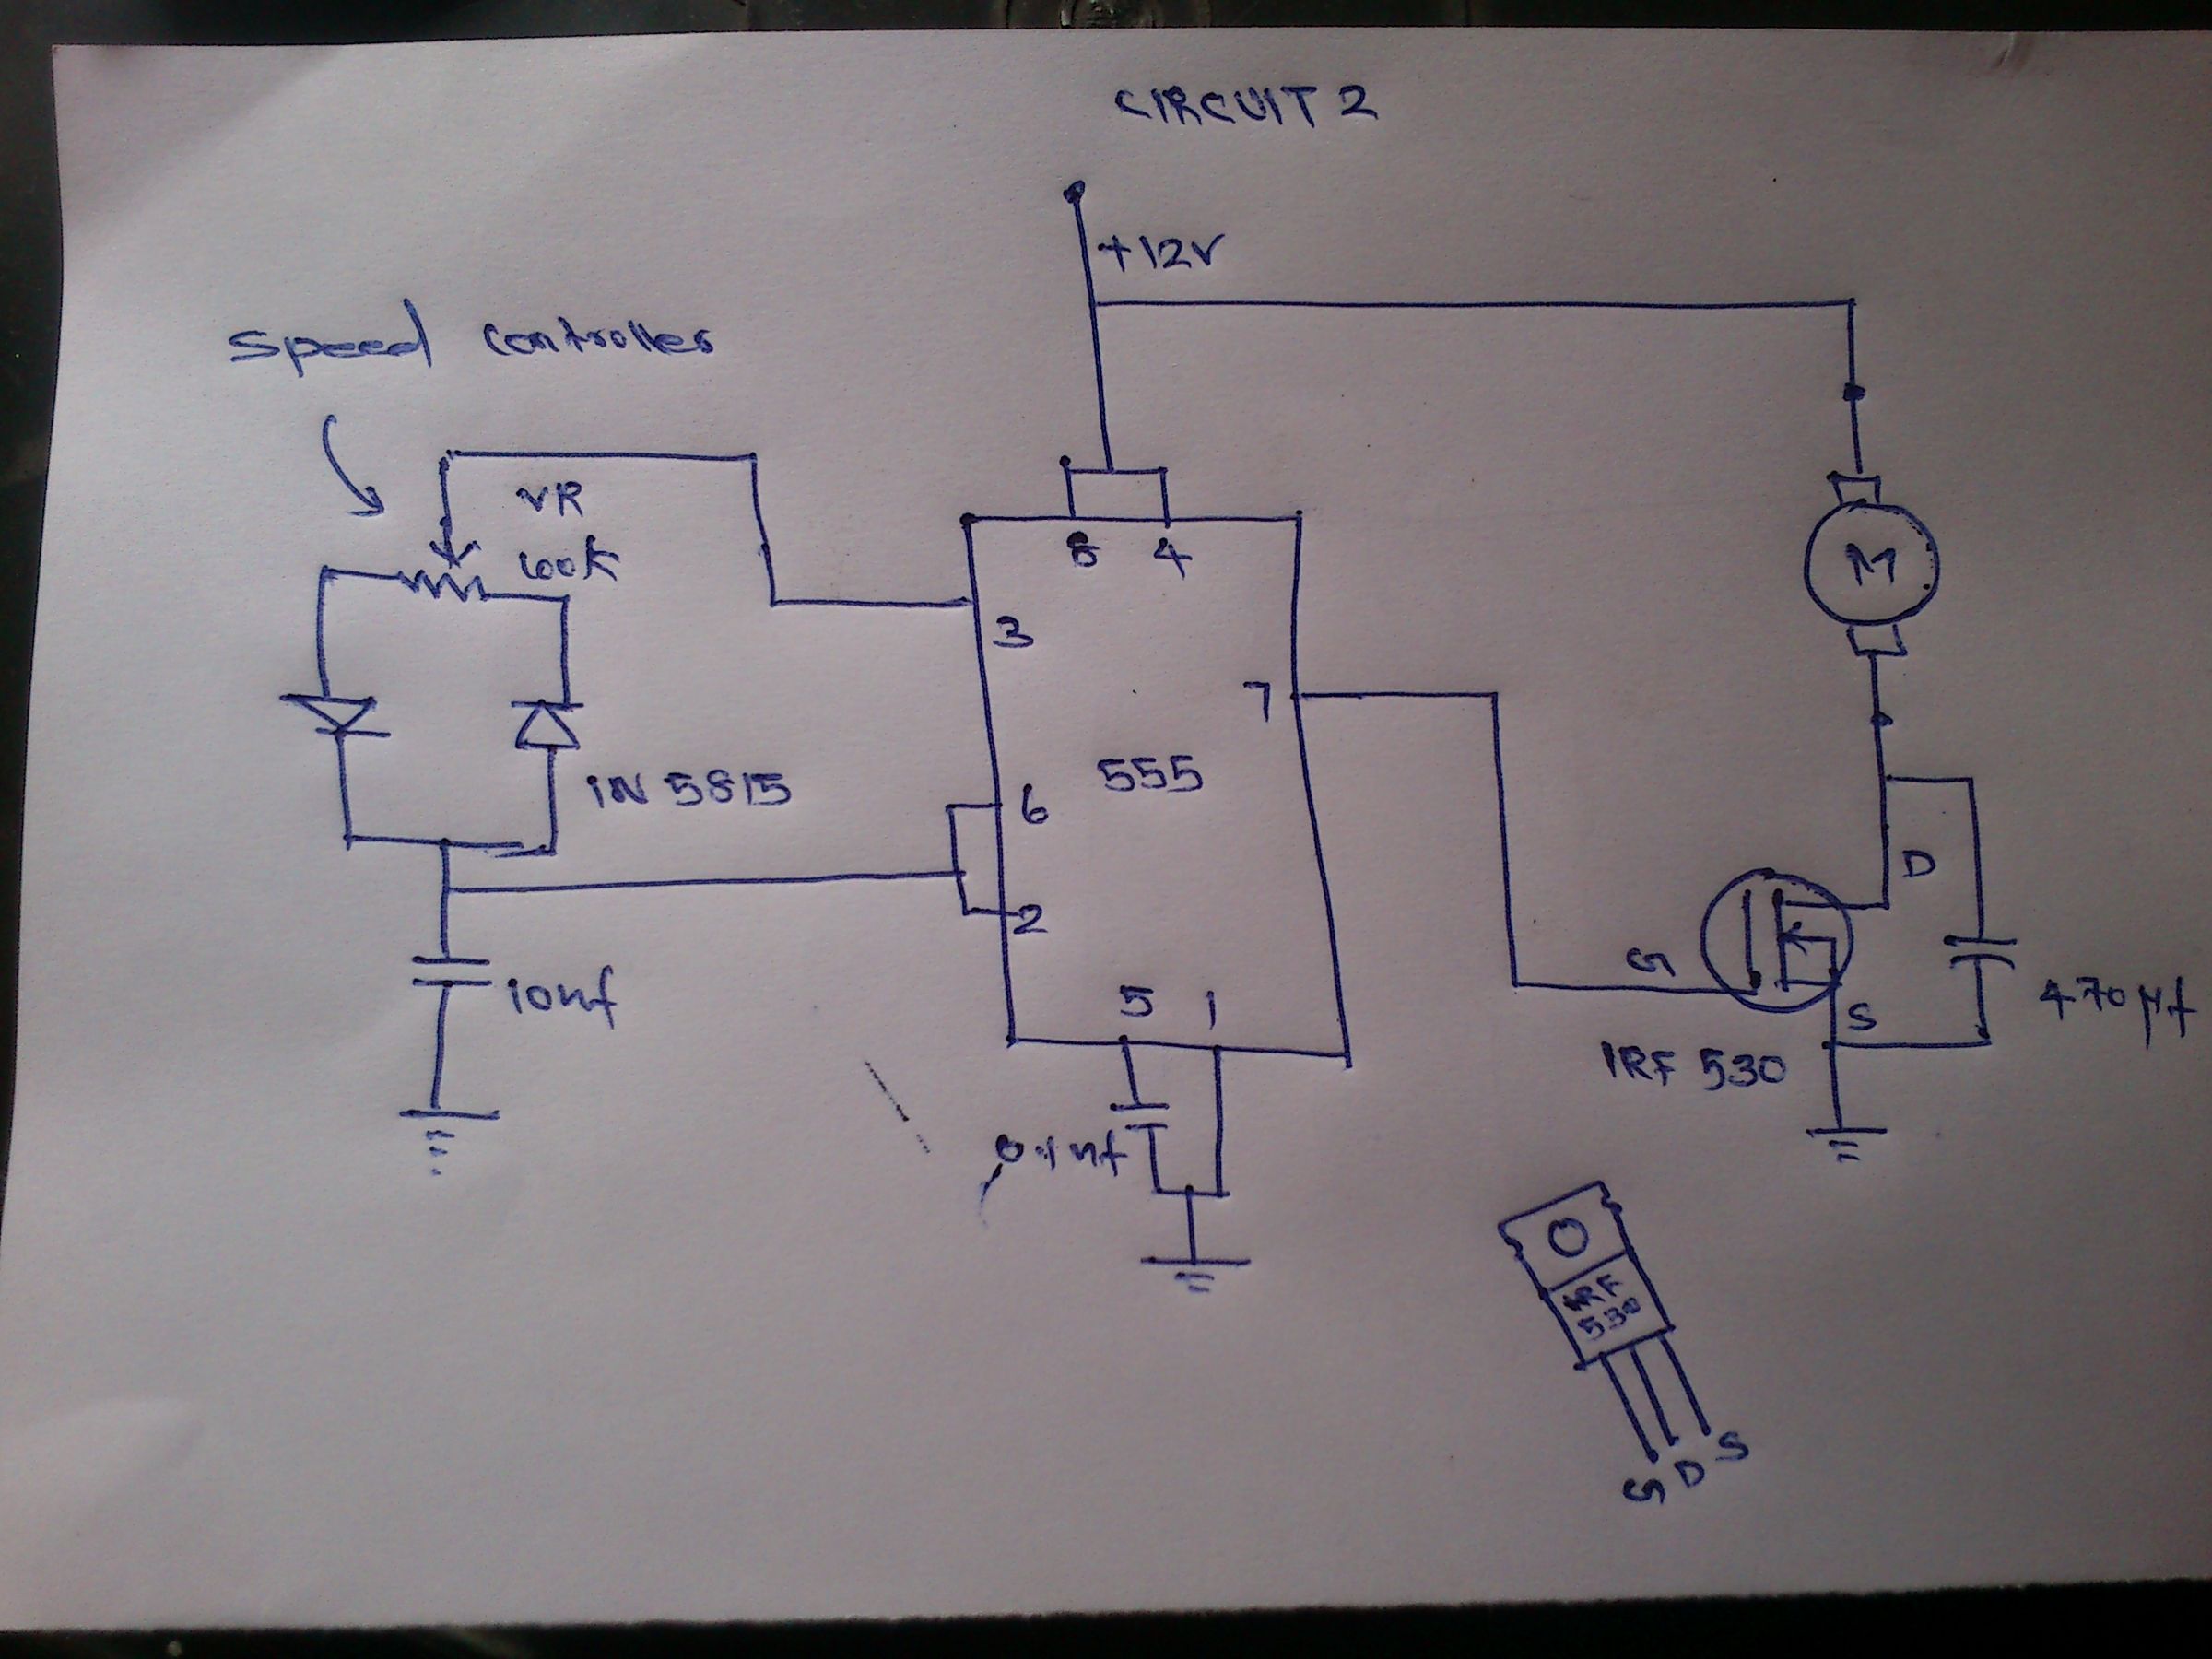 CIRCUIT 2
+12V
Speed Controller
VR
100K
8 4
3
7
555
1N 5815
6
2
D
G
S
10nf
5 1
470 µf
IRF 530
0.1nf
IRF
530
G D S
M